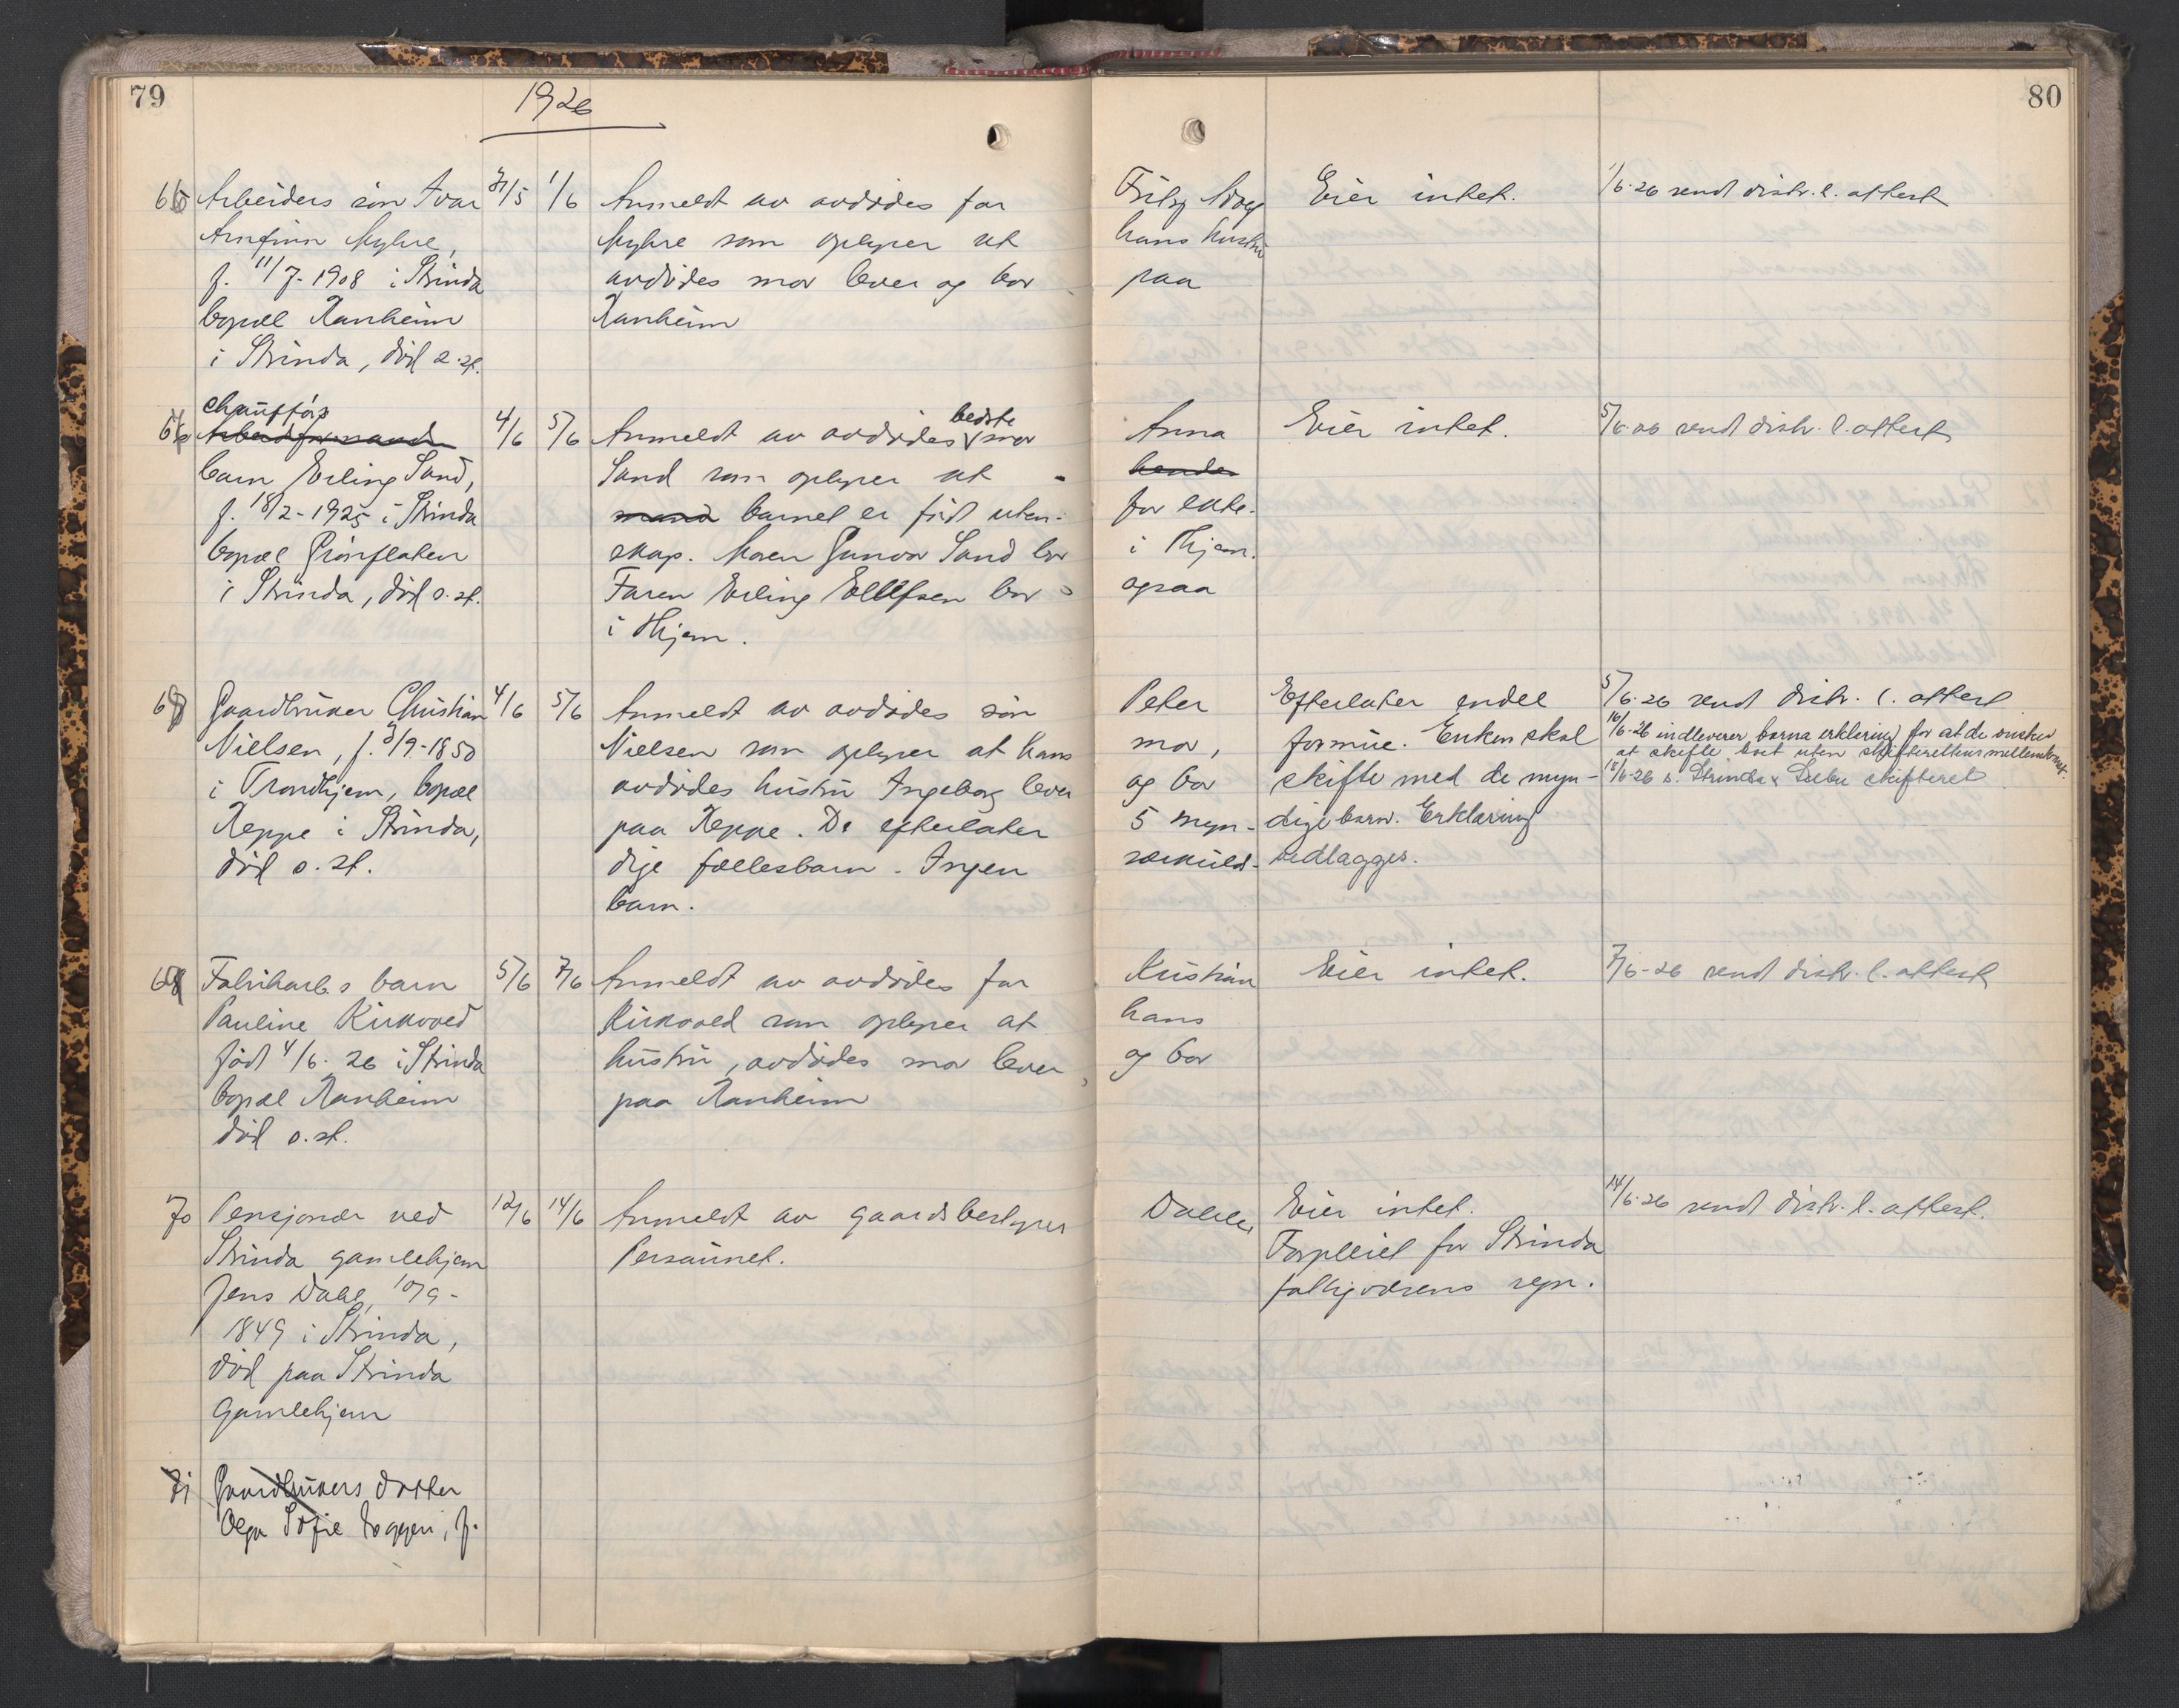 79
1926
80
66 Arbeiders søn Ivar 31/5 1/6 Anmeldt av avdødes far Fritz Eier intet. 1/6-26 sendt distr.l. attest
Arnfinn Myhre, Myhre som oplyser at hans hustru
f. 11/7-1908 i Strinda avdødes mor lever og bor paa
bopæl Ranheim Ranheim
i Strinda, død s. st.
chaufførs bedste
67 Arbeidsformands 4/6 5/6 Anmeldt av avdødes mor Anna Eier intet. 5/6-26 sendt distr.l. attest
barn Erling Sand, Sand som oplyser at hendes
f. 18/2-1925 i Strinda mand barnet er født uten- for ekte-
bopæl Grønflaten skap. Moren Gunvor Sand bor i Thjem.
i Strinda, død s. st. Faren Erling Ellefsen bor ogsaa
i Thjem.
68 Gaardbruker Christian 4/6 5/6 Anmeldt av avdødes søn Peter Efterlater endel 5/6-26 sendt distr. l. attest
Nielsen, f. 3/9-1850 Nielsen som oplyser at hans mor, formue. Enken skal 16/6-26 indleverer barna erklæring for at de ønsker
at skifte boet uten skifterettens mellemkomst.
i Trondhjem, bopæl avdødes hustru Ingeborg lever og bor skifte med de myn- 18/6-26 s. Strinda & Selbu skifteret
Reppe i Strinda, paa Reppe. De efterlater 5 myn- dige barn. Erklæring
død s. st. dige fællesbarn. Ingen særkuld- vedlægges.
barn.
69 Fabrikarb.s barn 5/6 7/6 Anmeldt av avdødes far Kristian Eier intet. 7/6-26 sendt distr. l. attest
Pauline Kirkvold Kirkvold som oplyser at hans
født 4/6. 26 i Strinda hustru, avdødes mor lever og bor
bopæl Ranheim paa Ranheim
død s. st.
70 Pensjonær ved 12/6 14/6 Anmeldt av gaardsbestyrer Dahlen Eier intet. 14/6-26 sendt distr. l. attest.
Strinda gamlehjem Persaunet. Forpleiet for Strinda
Jens Dahl, 10/9- fattigvæsens regn.
1849 i Strinda,
død paa Strinda
Gamlehjem
71 Gaardbrukers datter
Olga Sofie Loggen, f.